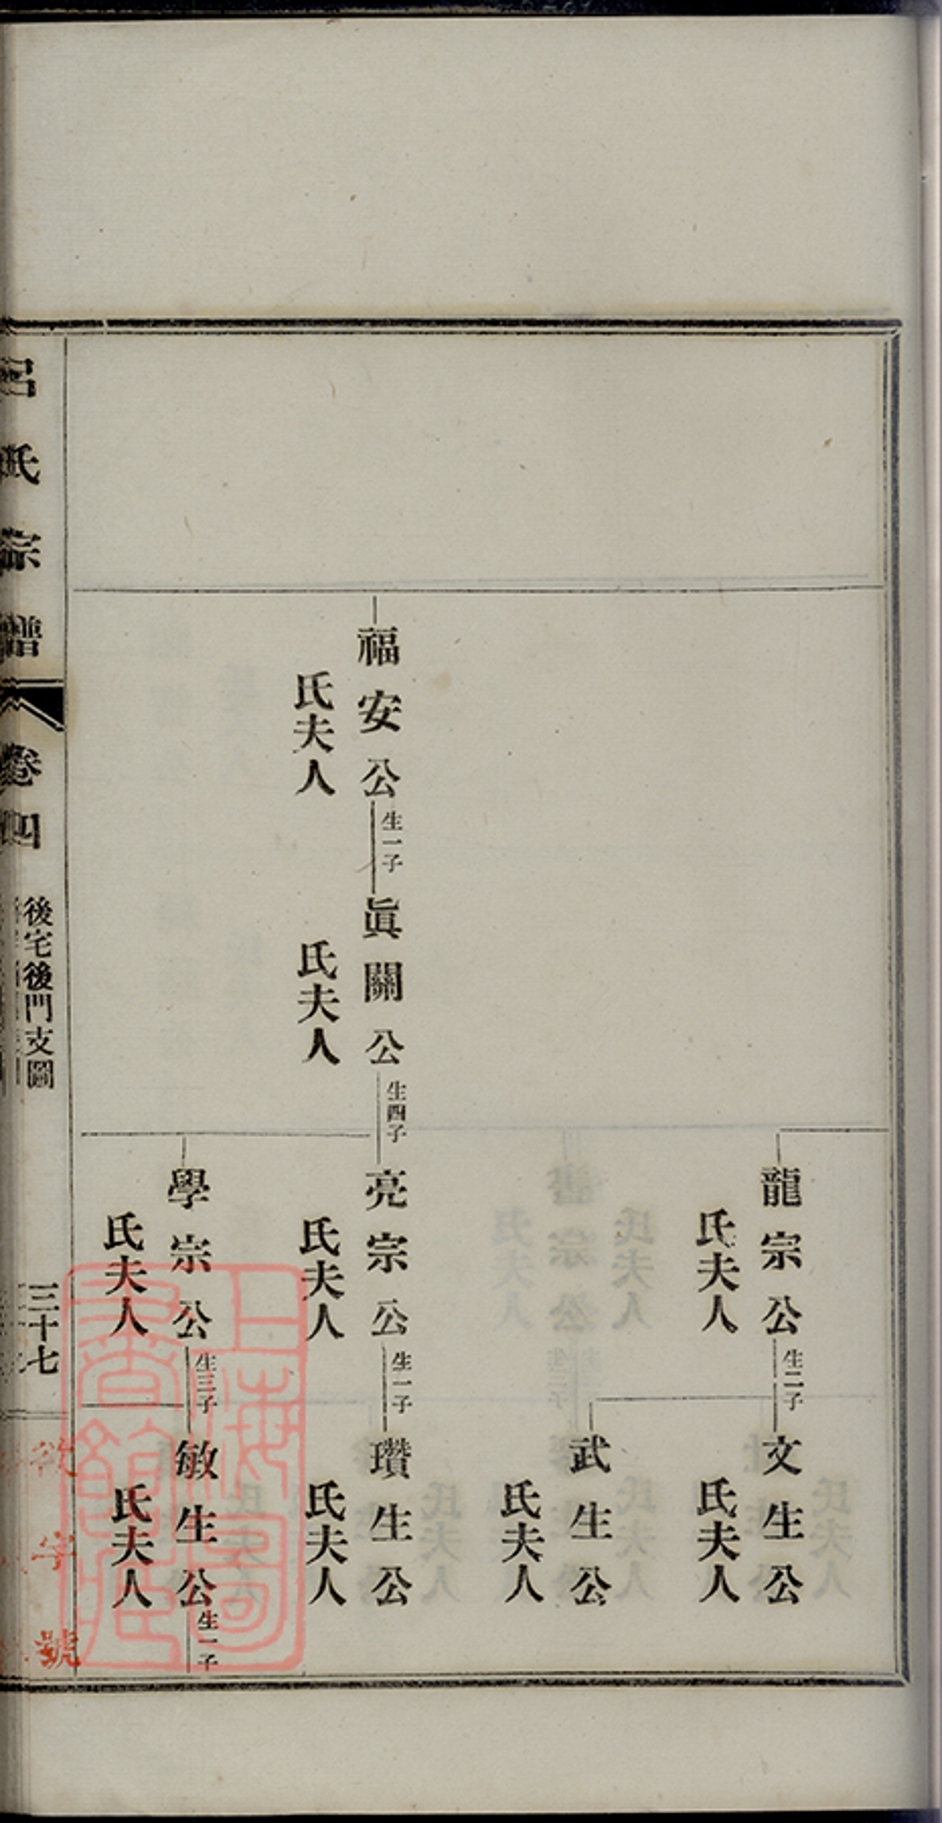 龍宗公生二子
氏夫人
文生公
氏夫人
武生公
氏夫人
福安公生一子
氏夫人
眞關公生四子
氏夫人
亮宗公生一子
氏夫人
瓚生公
氏夫人
學宗公生三子
氏夫人
敏生公生一子
氏夫人
呂氏宗譜
卷四
後宅後門支圖
三十七
字號
上海圖書館藏